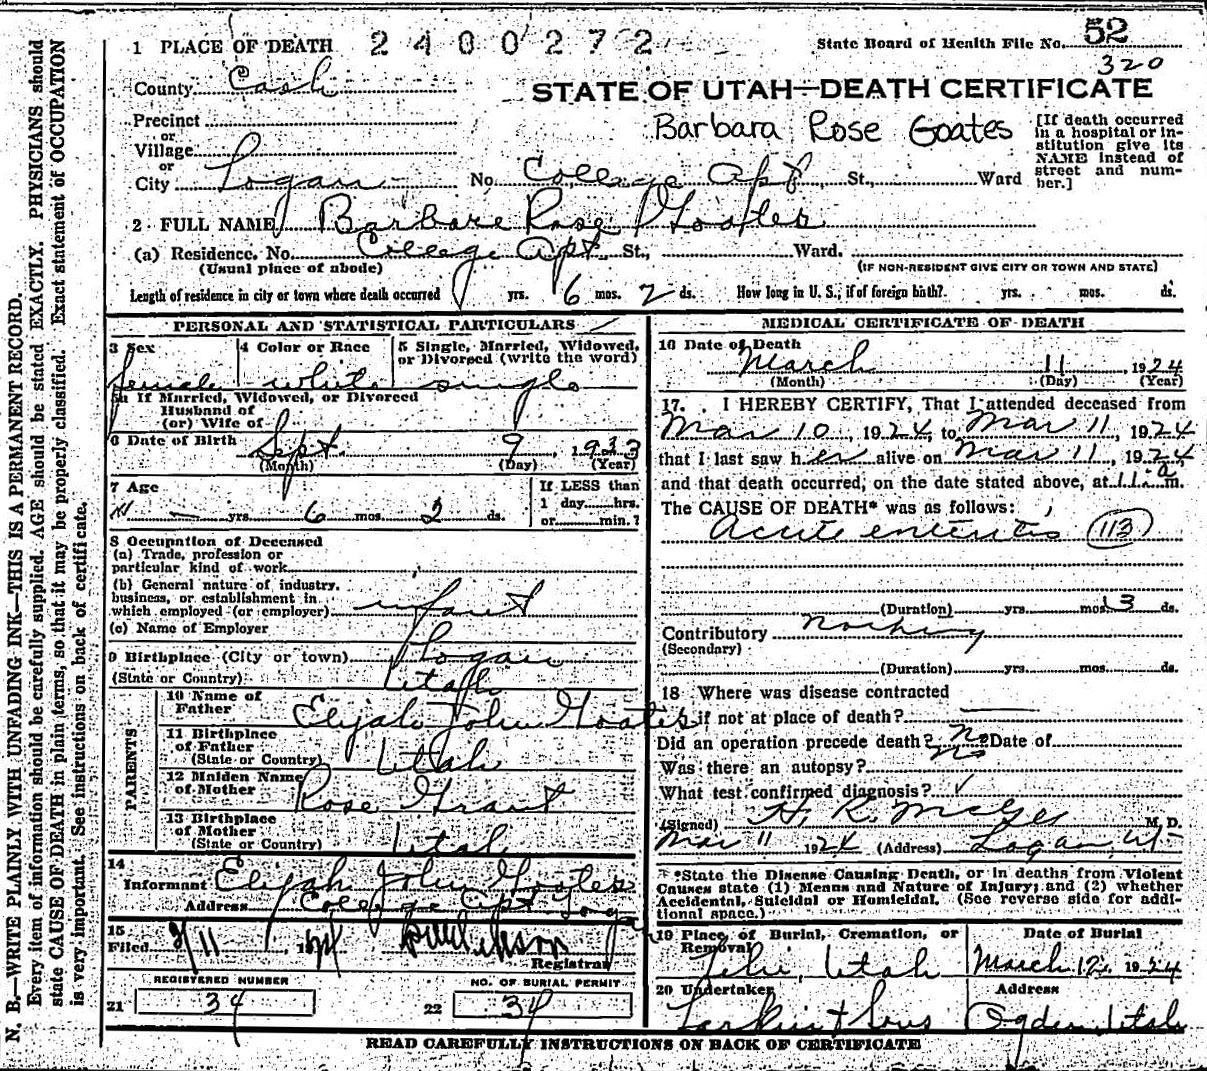 1 PLACE OF DEATH 2400272
State Board of Health File No. 52
320
County Cash
STATE OF UTAH—DEATH CERTIFICATE
Precinct
or
Village
or
City Logan No. College Apt St., Ward
Barbara Rose Goates
[If death occurred in a hospital or institution give its NAME instead of street and number.]
2 FULL NAME Barbara Rose Goates
(a) Residence. No. College Apt. St., Ward.
(Usual place of abode) (IF NON-RESIDENT GIVE CITY OR TOWN AND STATE)
Length of residence in city or town where death occurred yrs. 6 mos. 2 ds. How long in U. S., if of foreign birth? yrs. mos. ds.
PERSONAL AND STATISTICAL PARTICULARS
3 Sex 4 Color or Race 5 Single, Married, Widowed, or Divorced (write the word)
female white single
5a If Married, Widowed, or Divorced
Husband of
(or) Wife of
6 Date of Birth Sept. 9, 1923
(Month) (Day) (Year)
7 Age — yrs. 6 mos. 2 ds.
If LESS than
1 day hrs.
or min.?
8 Occupation of Deceased
(a) Trade, profession or
particular kind of work
(b) General nature of industry,
business, or establishment in
which employed (or employer) infant
(c) Name of Employer
9 Birthplace (City or town) Logan
(State or Country) Utah
PARENTS
10 Name of Father Elijah John Goates
11 Birthplace of Father (State or Country) Utah
12 Maiden Name of Mother Rose Grant
13 Birthplace of Mother (State or Country) Utah
14
Informant Elijah John Goates
Address College Apt Logan
15
Filed 3/11, 1924
Registrar
REGISTERED NUMBER
21 34
NO. OF BURIAL PERMIT
22 34
MEDICAL CERTIFICATE OF DEATH
16 Date of Death March 11, 1924
(Month) (Day) (Year)
17. I HEREBY CERTIFY, That I attended deceased from
Mar 10, 1924, to Mar 11, 1924
that I last saw her alive on Mar 11, 1924
and that death occurred, on the date stated above, at 11 a m.
The CAUSE OF DEATH* was as follows:
Acute enteritis (113)
(Duration) yrs. mos. 3 ds.
Contributory Nothing
(Secondary)
(Duration) yrs. mos. ds.
18 Where was disease contracted
if not at place of death?
Did an operation precede death? No Date of
Was there an autopsy? No
What test confirmed diagnosis?
(Signed) H. R. McGee M. D.
Mar 11 1924 (Address) Logan, Ut
*State the Disease Causing Death, or in deaths from Violent
Causes state (1) Means and Nature of Injury; and (2) whether
Accidental, Suicidal or Homicidal. (See reverse side for addi-
tional space.)
19 Place of Burial, Cremation, or Removal Date of Burial
Lehi, Utah March 12, 1924
20 Undertaker Address
Larkin & Sons Ogden Utah
READ CAREFULLY INSTRUCTIONS ON BACK OF CERTIFICATE
N. B.—WRITE PLAINLY WITH UNFADING INK—THIS IS A PERMANENT RECORD.
Every item of information should be carefully supplied. AGE should be stated EXACTLY. PHYSICIANS should
state CAUSE OF DEATH in plain terms, so that it may be properly classified. Exact statement of OCCUPATION
is very important. See instructions on back of certificate.